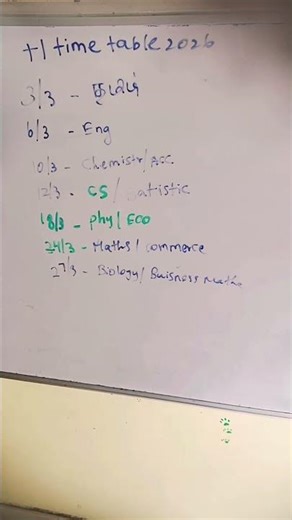 +1 time table 2026
3/3 - தமிழ்
6/3 - Eng
10/3 - Chemistr/Acc
12/3 - CS / statistic
18/3 - phy/ ECO
24/3 - Maths / commerce
27/3 - Biology/ Buisness maths